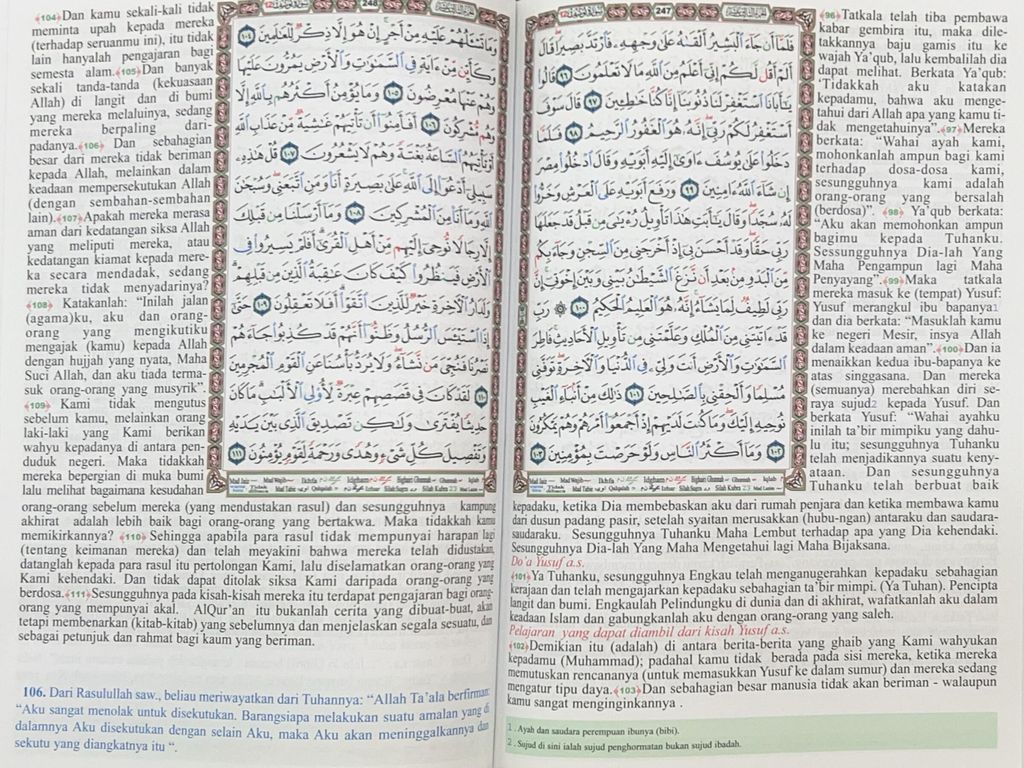 247
فَلَمَّا أَن جَاءَ الْبَشِيرُ أَلْقَىٰهُ عَلَىٰ وَجْهِهِ فَارْتَدَّ بَصِيرًا قَالَ
أَلَمْ أَقُل لَّكُمْ إِنِّي أَعْلَمُ مِنَ اللَّهِ مَا لَا تَعْلَمُونَ ٩٦ قَالُوا
يَٰأَبَانَا اسْتَغْفِرْ لَنَا ذُنُوبَنَا إِنَّا كُنَّا خَٰطِـِٔينَ ٩٧ قَالَ سَوْفَ
أَسْتَغْفِرُ لَكُمْ رَبِّي إِنَّهُ هُوَ الْغَفُورُ الرَّحِيمُ ٩٨ فَلَمَّا
دَخَلُوا عَلَىٰ يُوسُفَ ءَاوَىٰ إِلَيْهِ أَبَوَيْهِ وَقَالَ ادْخُلُوا مِصْرَ
إِن شَاءَ اللَّهُ ءَامِنِينَ ٩٩ وَرَفَعَ أَبَوَيْهِ عَلَى الْعَرْشِ وَخَرُّوا
لَهُ سُجَّدًا وَقَالَ يَٰأَبَتِ هَٰذَا تَأْوِيلُ رُءْيَٰيَ مِن قَبْلُ قَدْ جَعَلَهَا
رَبِّي حَقًّا وَقَدْ أَحْسَنَ بِي إِذْ أَخْرَجَنِي مِنَ السِّجْنِ وَجَاءَ بِكُم
مِّنَ الْبَدْوِ مِن بَعْدِ أَن نَّزَغَ الشَّيْطَٰنُ بَيْنِي وَبَيْنَ إِخْوَتِي إِنَّ
رَبِّي لَطِيفٌ لِّمَا يَشَاءُ إِنَّهُ هُوَ الْعَلِيمُ الْحَكِيمُ ١٠٠ ۞ رَبِّ
قَدْ ءَاتَيْتَنِي مِنَ الْمُلْكِ وَعَلَّمْتَنِي مِن تَأْوِيلِ الْأَحَادِيثِ فَاطِرَ
السَّمَٰوَٰتِ وَالْأَرْضِ أَنتَ وَلِيِّۦ فِي الدُّنْيَا وَالْءَاخِرَةِ تَوَفَّنِي
مُسْلِمًا وَأَلْحِقْنِي بِالصَّٰلِحِينَ ١٠١ ذَٰلِكَ مِنْ أَنبَاءِ الْغَيْبِ
نُوحِيهِ إِلَيْكَ وَمَا كُنتَ لَدَيْهِمْ إِذْ أَجْمَعُوا أَمْرَهُمْ وَهُمْ يَمْكُرُونَ
١٠٢ وَمَا أَكْثَرُ النَّاسِ وَلَوْ حَرَصْتَ بِمُؤْمِنِينَ ١٠٣
﴾96﴿Tatkala telah tiba pembawa
kabar gembira itu, maka dile-
takkannya baju gamis itu ke
wajah Ya'qub, lalu kembalilah dia
dapat melihat. Berkata Ya'qub:
Tidakkah aku katakan
kepadamu, bahwa aku menge-
tahui dari Allah apa yang kamu ti-
dak mengetahuinya”.﴾97﴿Mereka
berkata: “Wahai ayah kami,
mohonkanlah ampun bagi kami
terhadap dosa-dosa kami,
sesungguhnya kami adalah
orang-orang yang bersalah
(berdosa)”. ﴾98﴿ Ya'qub berkata:
“Aku akan memohonkan ampun
bagimu kepada Tuhanku.
Sessungguhnya Dia-lah Yang
Maha Pengampun lagi Maha
Penyayang”.﴾99﴿Maka tatkala
mereka masuk ke (tempat) Yusuf:
Yusuf merangkul ibu bapanya1
dan dia berkata: “Masuklah kamu
ke negeri Mesir, insya Allah
dalam keadaan aman”.﴾100﴿Dan ia
menaikkan kedua ibu-bapanya ke
atas singgasana. Dan mereka
(semuanya) merebahkan diri se-
raya sujud2 kepada Yusuf. Dan
berkata Yusuf: “Wahai ayahku
inilah ta'bir mimpiku yang dahu-
lu itu; sesungguhnya Tuhanku
telah menjadikannya suatu keny-
ataan. Dan sesungguhnya
Tuhanku telah berbuat baik
kepadaku, ketika Dia membebaskan aku dari rumah penjara dan ketika membawa kamu
dari dusun padang pasir, setelah syaitan merusakkan (hubu-ngan) antaraku dan saudara-
saudaraku. Sesungguhnya Tuhanku Maha Lembut terhadap apa yang Dia kehendaki.
Sesungguhnya Dia-lah Yang Maha Mengetahui lagi Maha Bijaksana.
Do'a Yusuf a.s.
﴾101﴿Ya Tuhanku, sesungguhnya Engkau telah menganugerahkan kepadaku sebahagian
kerajaan dan telah mengajarkan kepadaku sebahagian ta'bir mimpi. (Ya Tuhan). Pencipta
langit dan bumi. Engkaulah Pelindungku di dunia dan di akhirat, wafatkanlah aku dalam
keadaan Islam dan gabungkanlah aku dengan orang-orang yang saleh.
Pelajaran yang dapat diambil dari kisah Yusuf a.s.
﴾102﴿Demikian itu (adalah) di antara berita-berita yang ghaib yang Kami wahyukan
kepadamu (Muhammad); padahal kamu tidak berada pada sisi mereka, ketika mereka
memutuskan rencananya (untuk memasukkan Yusuf ke dalam sumur) dan mereka sedang
mengatur tipu daya.﴾103﴿Dan sebahagian besar manusia tidak akan beriman - walaupun
kamu sangat menginginkannya .
1 . Ayah dan saudara perempuan ibunya (bibi).
2 . Sujud di sini ialah sujud penghormatan bukan sujud ibadah.
248
وَمَا تَسْـَٔلُهُمْ عَلَيْهِ مِنْ أَجْرٍ إِنْ هُوَ إِلَّا ذِكْرٌ لِّلْعَٰلَمِينَ ١٠٤
وَكَأَيِّن مِّنْ ءَايَةٍ فِي السَّمَٰوَٰتِ وَالْأَرْضِ يَمُرُّونَ عَلَيْهَا
وَهُمْ عَنْهَا مُعْرِضُونَ ١٠٥ وَمَا يُؤْمِنُ أَكْثَرُهُم بِاللَّهِ إِلَّا
وَهُم مُّشْرِكُونَ ١٠٦ أَفَأَمِنُوا أَن تَأْتِيَهُمْ غَٰشِيَةٌ مِّنْ عَذَابِ اللَّهِ
أَوْ تَأْتِيَهُمُ السَّاعَةُ بَغْتَةً وَهُمْ لَا يَشْعُرُونَ ١٠٧ قُلْ هَٰذِهِ
سَبِيلِي أَدْعُوا إِلَى اللَّهِ عَلَىٰ بَصِيرَةٍ أَنَا وَمَنِ اتَّبَعَنِي وَسُبْحَٰنَ
اللَّهِ وَمَا أَنَا مِنَ الْمُشْرِكِينَ ١٠٨ وَمَا أَرْسَلْنَا مِن قَبْلِكَ
إِلَّا رِجَالًا نُّوحِي إِلَيْهِم مِّنْ أَهْلِ الْقُرَىٰ أَفَلَمْ يَسِيرُوا فِي
الْأَرْضِ فَيَنظُرُوا كَيْفَ كَانَ عَٰقِبَةُ الَّذِينَ مِن قَبْلِهِمْ
وَلَدَارُ الْءَاخِرَةِ خَيْرٌ لِّلَّذِينَ اتَّقَوْا أَفَلَا تَعْقِلُونَ ١٠٩ حَتَّىٰ
إِذَا اسْتَيْـَٔسَ الرُّسُلُ وَظَنُّوا أَنَّهُمْ قَدْ كُذِبُوا جَاءَهُمْ
نَصْرُنَا فَنُجِّيَ مَن نَّشَاءُ وَلَا يُرَدُّ بَأْسُنَا عَنِ الْقَوْمِ الْمُجْرِمِينَ
١١٠ لَقَدْ كَانَ فِي قَصَصِهِمْ عِبْرَةٌ لِّأُولِي الْأَلْبَٰبِ مَا كَانَ
حَدِيثًا يُفْتَرَىٰ وَلَٰكِن تَصْدِيقَ الَّذِي بَيْنَ يَدَيْهِ
وَتَفْصِيلَ كُلِّ شَيْءٍ وَهُدًى وَرَحْمَةً لِّقَوْمٍ يُؤْمِنُونَ ١١١
﴾104﴿Dan kamu sekali-kali tidak
meminta upah kepada mereka
(terhadap seruanmu ini), itu tidak
lain hanyalah pengajaran bagi
semesta alam.﴾105﴿Dan banyak
sekali tanda-tanda (kekuasaan
Allah) di langit dan di bumi
yang mereka melaluinya, sedang
mereka berpaling dari-
padanya.﴾106﴿ Dan sebahagian
besar dari mereka tidak beriman
kepada Allah, melainkan dalam
keadaan mempersekutukan Allah
(dengan sembahan-sembahan
lain).﴾107﴿Apakah mereka merasa
aman dari kedatangan siksa Allah
yang meliputi mereka, atau
kedatangan kiamat kepada mere-
ka secara mendadak, sedang
mereka tidak menyadarinya?
﴾108﴿ Katakanlah: “Inilah jalan
(agama)ku, aku dan orang-
orang yang mengikutiku
mengajak (kamu) kepada Allah
dengan hujjah yang nyata, Maha
Suci Allah, dan aku tiada terma-
suk orang-orang yang musyrik”.
﴾109﴿ Kami tidak mengutus
sebelum kamu, melainkan orang
laki-laki yang Kami berikan
wahyu kepadanya di antara pen-
duduk negeri. Maka tidakkah
mereka bepergian di muka bumi
lalu melihat bagaimana kesudahan
orang-orang sebelum mereka (yang mendustakan rasul) dan sesungguhnya kampung
akhirat adalah lebih baik bagi orang-orang yang bertakwa. Maka tidakkah kamu
memikirkannya? ﴾110﴿ Sehingga apabila para rasul tidak mempunyai harapan lagi
(tentang keimanan mereka) dan telah meyakini bahwa mereka telah didustakan,
datanglah kepada para rasul itu pertolongan Kami, lalu diselamatkan orang-orang yang
Kami kehendaki. Dan tidak dapat ditolak siksa Kami daripada orang-orang yang
berdosa.﴾111﴿Sesungguhnya pada kisah-kisah mereka itu terdapat pengajaran bagi orang-
orang yang mempunyai akal. AlQur'an itu bukanlah cerita yang dibuat-buat, akan
tetapi membenarkan (kitab-kitab) yang sebelumnya dan menjelaskan segala sesuatu, dan
sebagai petunjuk dan rahmat bagi kaum yang beriman.
106. Dari Rasulullah saw., beliau meriwayatkan dari Tuhannya: “Allah Ta'ala berfirman:
“Aku sangat menolak untuk disekutukan. Barangsiapa melakukan suatu amalan yang di
dalamnya Aku disekutukan dengan selain Aku, maka Aku akan meninggalkannya dan
sekutu yang diangkatnya itu “.